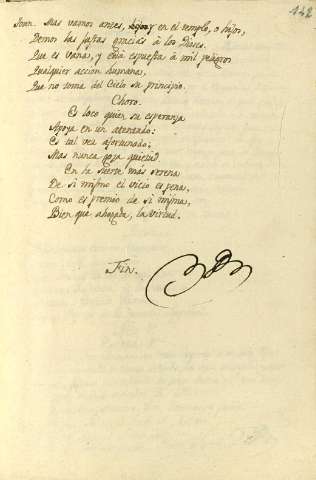 142
Mas vamos antes, hijos, y en el templo, o hijos,
Demos las justas gracias à los Dioses.
Que es vana, y està espuesta à mil peligros
Qualquier accion humana,
Que no toma del Cielo su principio.
Choro.
Es loco quien su esperanza
Apoya en un atentado:
Es tal vez afortunado;
Mas nunca goza quietud.
En la suerte más serena
De si mismo el vicio es pena,
Como es premio de si misma,
Bien que ahogada, la virtud.
Fin.